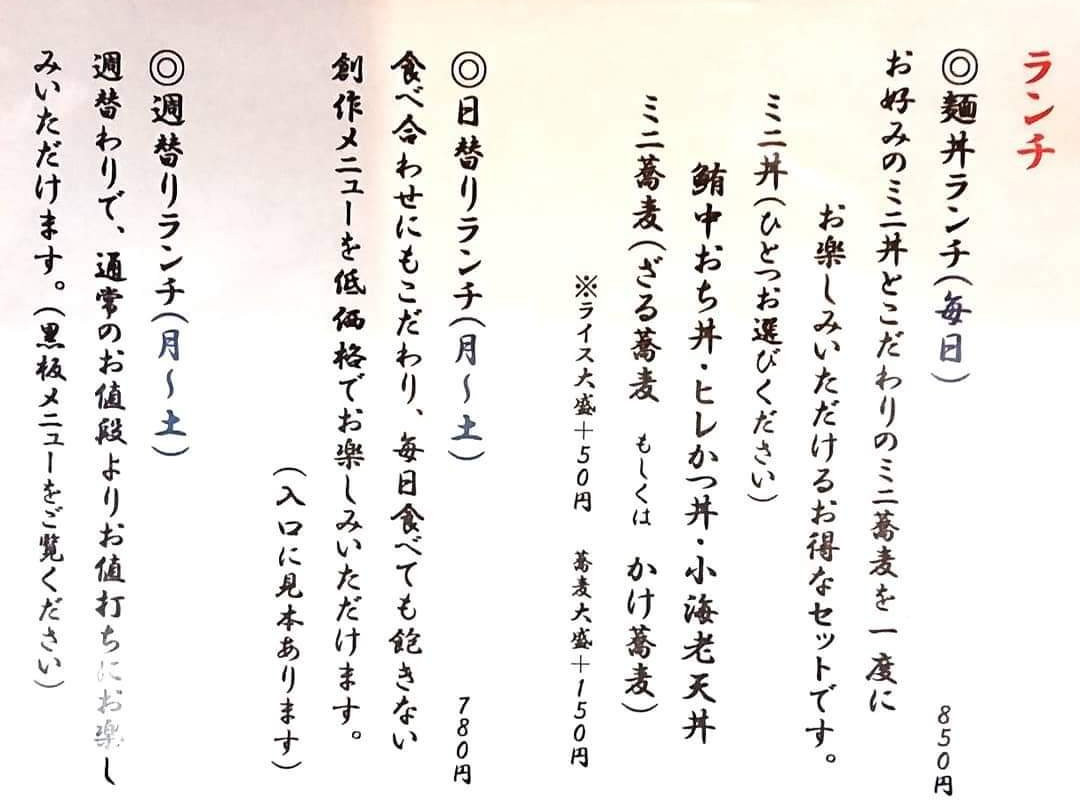 ランチ
◎麺丼ランチ(毎日) 850円
お好みのミニ丼とこだわりのミニ蕎麦を一度に
お楽しみいただけるお得なセットです。
ミニ丼(ひとつお選びください)
鮪中おち丼・ヒレかつ丼・小海老天丼
ミニ蕎麦(ざる蕎麦 もしくは かけ蕎麦)
※ライス大盛+50円 蕎麦大盛+150円
◎日替りランチ(月～土) 780円
食べ合わせにもこだわり、毎日食べても飽きない
創作メニューを低価格でお楽しみいただけます。
(入口に見本あります)
◎週替りランチ(月～土)
週替わりで、通常のお値段よりお値打ちにお楽し
みいただけます。(黒板メニューをご覧ください)